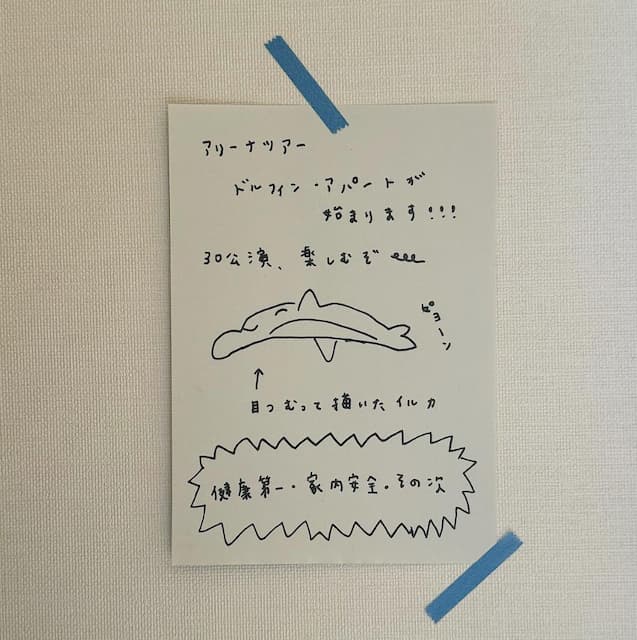 アリーナツアー
ドルフィン・アパートが
始まります!!!
30公演、楽しむぞ
ピョーン
↑
目つむって描いたイルカ
健康第一・家内安全・その次